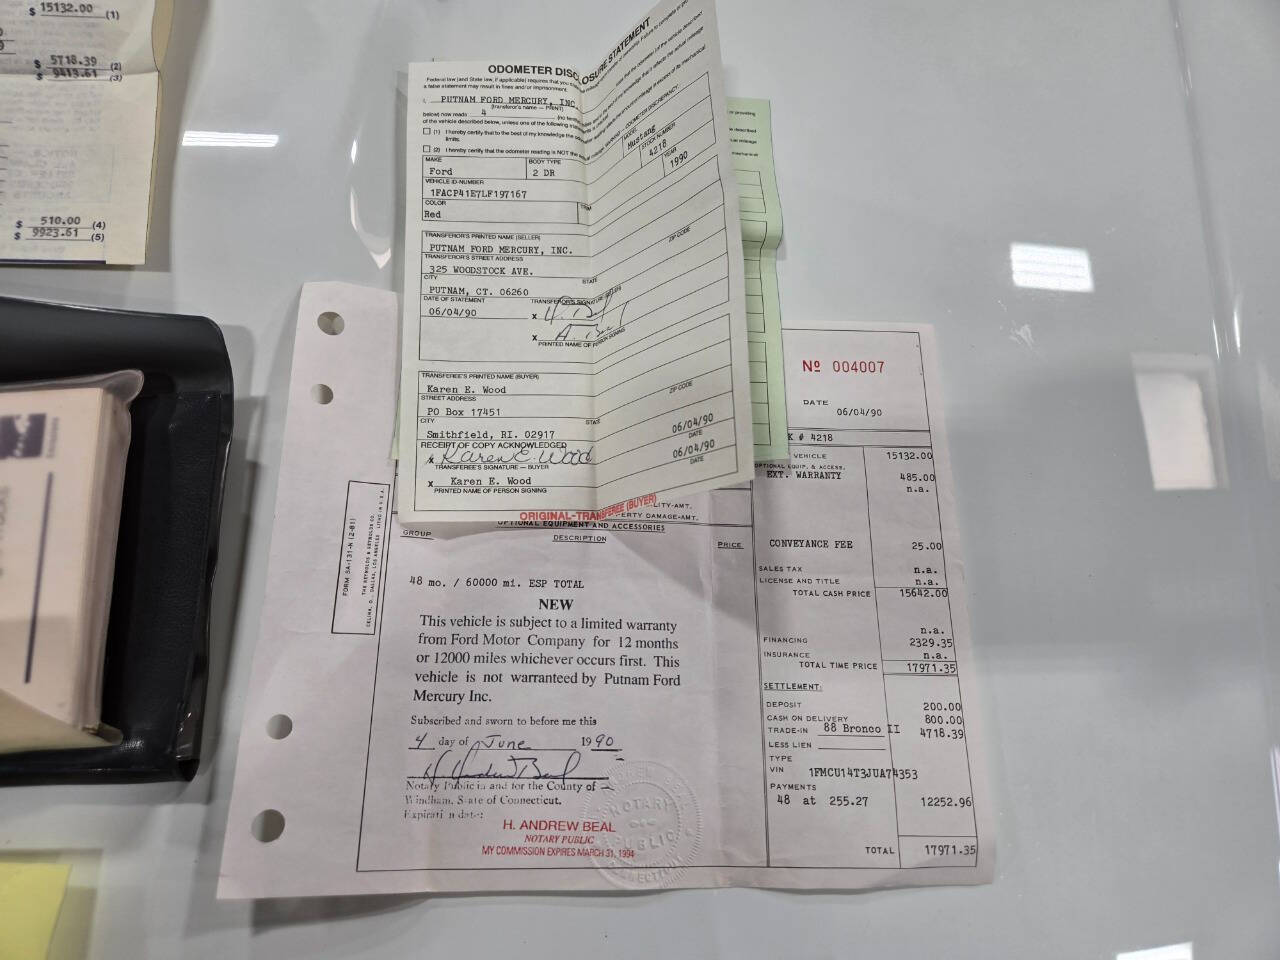 $ 15132.00 (1)
$ 5718.39 (2)
$ 9413.61 (3)
$ 510.00 (4)
$ 9923.61 (5)
ODOMETER DISCLOSURE STATEMENT
Federal law (and State law, if applicable) requires that you
a false statement may result in fines and/or imprisonment.
I, PUTNAM FORD MERCURY, INC.
(transferor's name — PRINT)
below) now reads 4 (no
of the vehicle described below, unless one of the following
(1) I hereby certify that to the best of my knowledge the
limits.
(2) I hereby certify that the odometer reading is NOT the
WARNING - ODOMETER DISCREPANCY.
MAKE
Ford
BODY TYPE
2 DR
MODEL
Mustang
STOCK NUMBER
4218
YEAR
1990
VEHICLE ID-NUMBER
1FACP41E7LF197167
COLOR
Red
TRIM
TRANSFEROR'S PRINTED NAME (SELLER)
PUTNAM FORD MERCURY, INC.
TRANSFEROR'S STREET ADDRESS
325 WOODSTOCK AVE.
CITY
STATE
ZIP CODE
PUTNAM, CT. 06260
DATE OF STATEMENT
06/04/90
TRANSFEROR'S SIGNATURE
x
x
PRINTED NAME OF PERSON SIGNING
TRANSFEREE'S PRINTED NAME (BUYER)
Karen E. Wood
STREET ADDRESS
PO Box 17451
CITY
STATE
ZIP CODE
Smithfield, RI. 02917
RECEIPT OF COPY ACKNOWLEDGED
x Karen E. Wood
06/04/90
TRANSFEREE'S SIGNATURE — BUYER
DATE
x Karen E. Wood
06/04/90
PRINTED NAME OF PERSON SIGNING
DATE
ORIGINAL-TRANSFEREE (BUYER)
Nº 004007
DATE
06/04/90
# 4218
VEHICLE 15132.00
OPTIONAL EQUIP. & ACCESS.
EXT. WARRANTY 485.00
n.a.
CONVEYANCE FEE 25.00
SALES TAX n.a.
LICENSE AND TITLE n.a.
TOTAL CASH PRICE 15642.00
n.a.
FINANCING 2329.35
INSURANCE n.a.
TOTAL TIME PRICE 17971.35
SETTLEMENT:
DEPOSIT 200.00
CASH ON DELIVERY 800.00
TRADE-IN 88 Bronco II 4718.39
LESS LIEN
TYPE
VIN 1FMCU14T3JUA74353
PAYMENTS
48 at 255.27 12252.96
TOTAL 17971.35
LITY-AMT.
PERTY DAMAGE-AMT.
OPTIONAL EQUIPMENT AND ACCESSORIES
GROUP DESCRIPTION PRICE
48 mo. / 60000 mi. ESP TOTAL
NEW
This vehicle is subject to a limited warranty
from Ford Motor Company for 12 months
or 12000 miles whichever occurs first. This
vehicle is not warranteed by Putnam Ford
Mercury Inc.
Subscribed and sworn to before me this
4 day of June 1990
H. Andrew Beal
Notary Public in and for the County of
Windham, State of Connecticut.
Expiration date:
H. ANDREW BEAL
NOTARY PUBLIC
MY COMMISSION EXPIRES MARCH 31, 1994
NOTARY
PUBLIC
CONNECTICUT
FORM SA-131-N (2-81)
THE REYNOLDS & REYNOLDS CO.
CELINA, O., DALLAS, LOS ANGELES LITHO IN U.S.A.